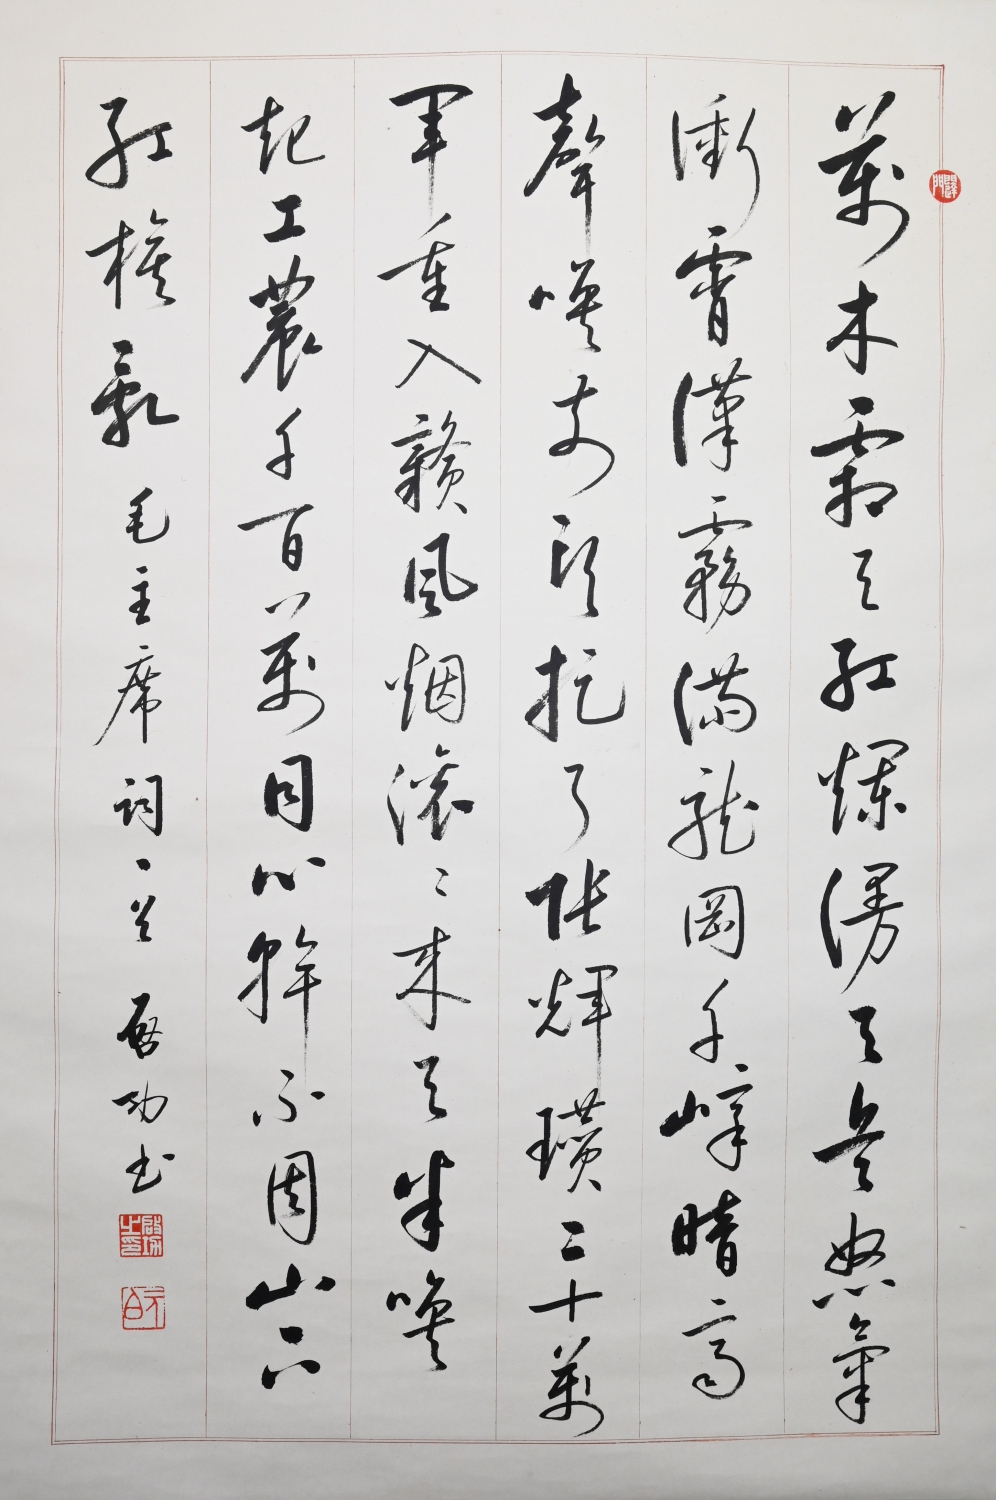 萬木霜天紅爛漫天兵怒氣
衝霄漢霧滿龍岡千嶂暗齊
聲喚前頭捉了張輝瓚二十萬
軍重入贛風烟滾〻來天半喚
起工農千百萬同心幹不周山下
紅旗亂 毛主席詞一首 啟功書
啟功之印
元白